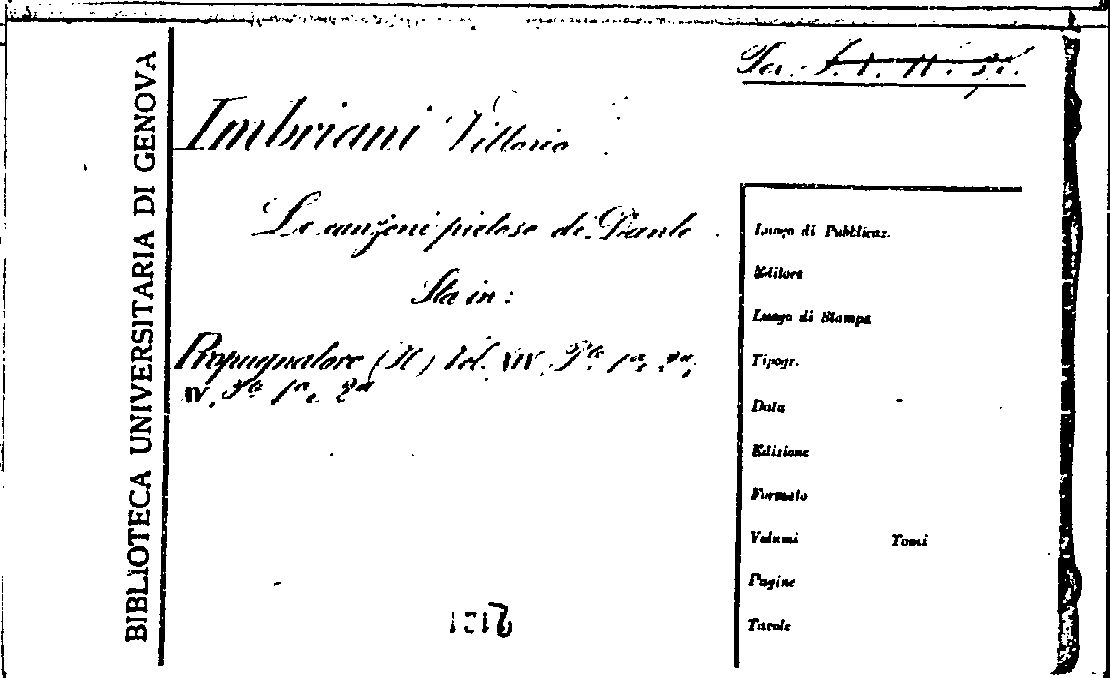 BIBLIOTECA UNIVERSITARIA DI GENOVA
Imbriani Vittorio
Le canzoni pietose di Dante.
Sta in:
Propugnatore (Il) Vol. XIV, Pte 1a e 2a,
XV, Pte 1a e 2a
Luogo di Pubblicaz.
Editore
Luogo di Stampa
Tipogr.
Data
Edizione
Formato
Volumi Tomi
Pagine
Tavole